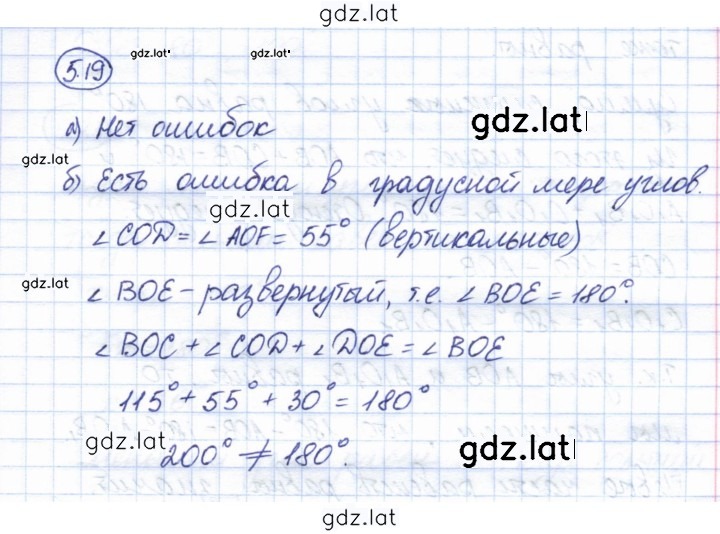 gdz.lat
5.19
gdz.lat
gdz.lat
а) Нет ошибок
gdz.lat
gdz.lat
б) Есть ошибка в градусной мере углов.
gdz.lat
∠COD = ∠AOF = 55° (вертикальные)
gdz.lat
∠BOE - развернутый, т.е. ∠BOE = 180°.
∠BOC + ∠COD + ∠DOE = ∠BOE
115° + 55° + 30° = 180°
gdz.lat
200° ≠ 180°.
gdz.lat
gdz.lat